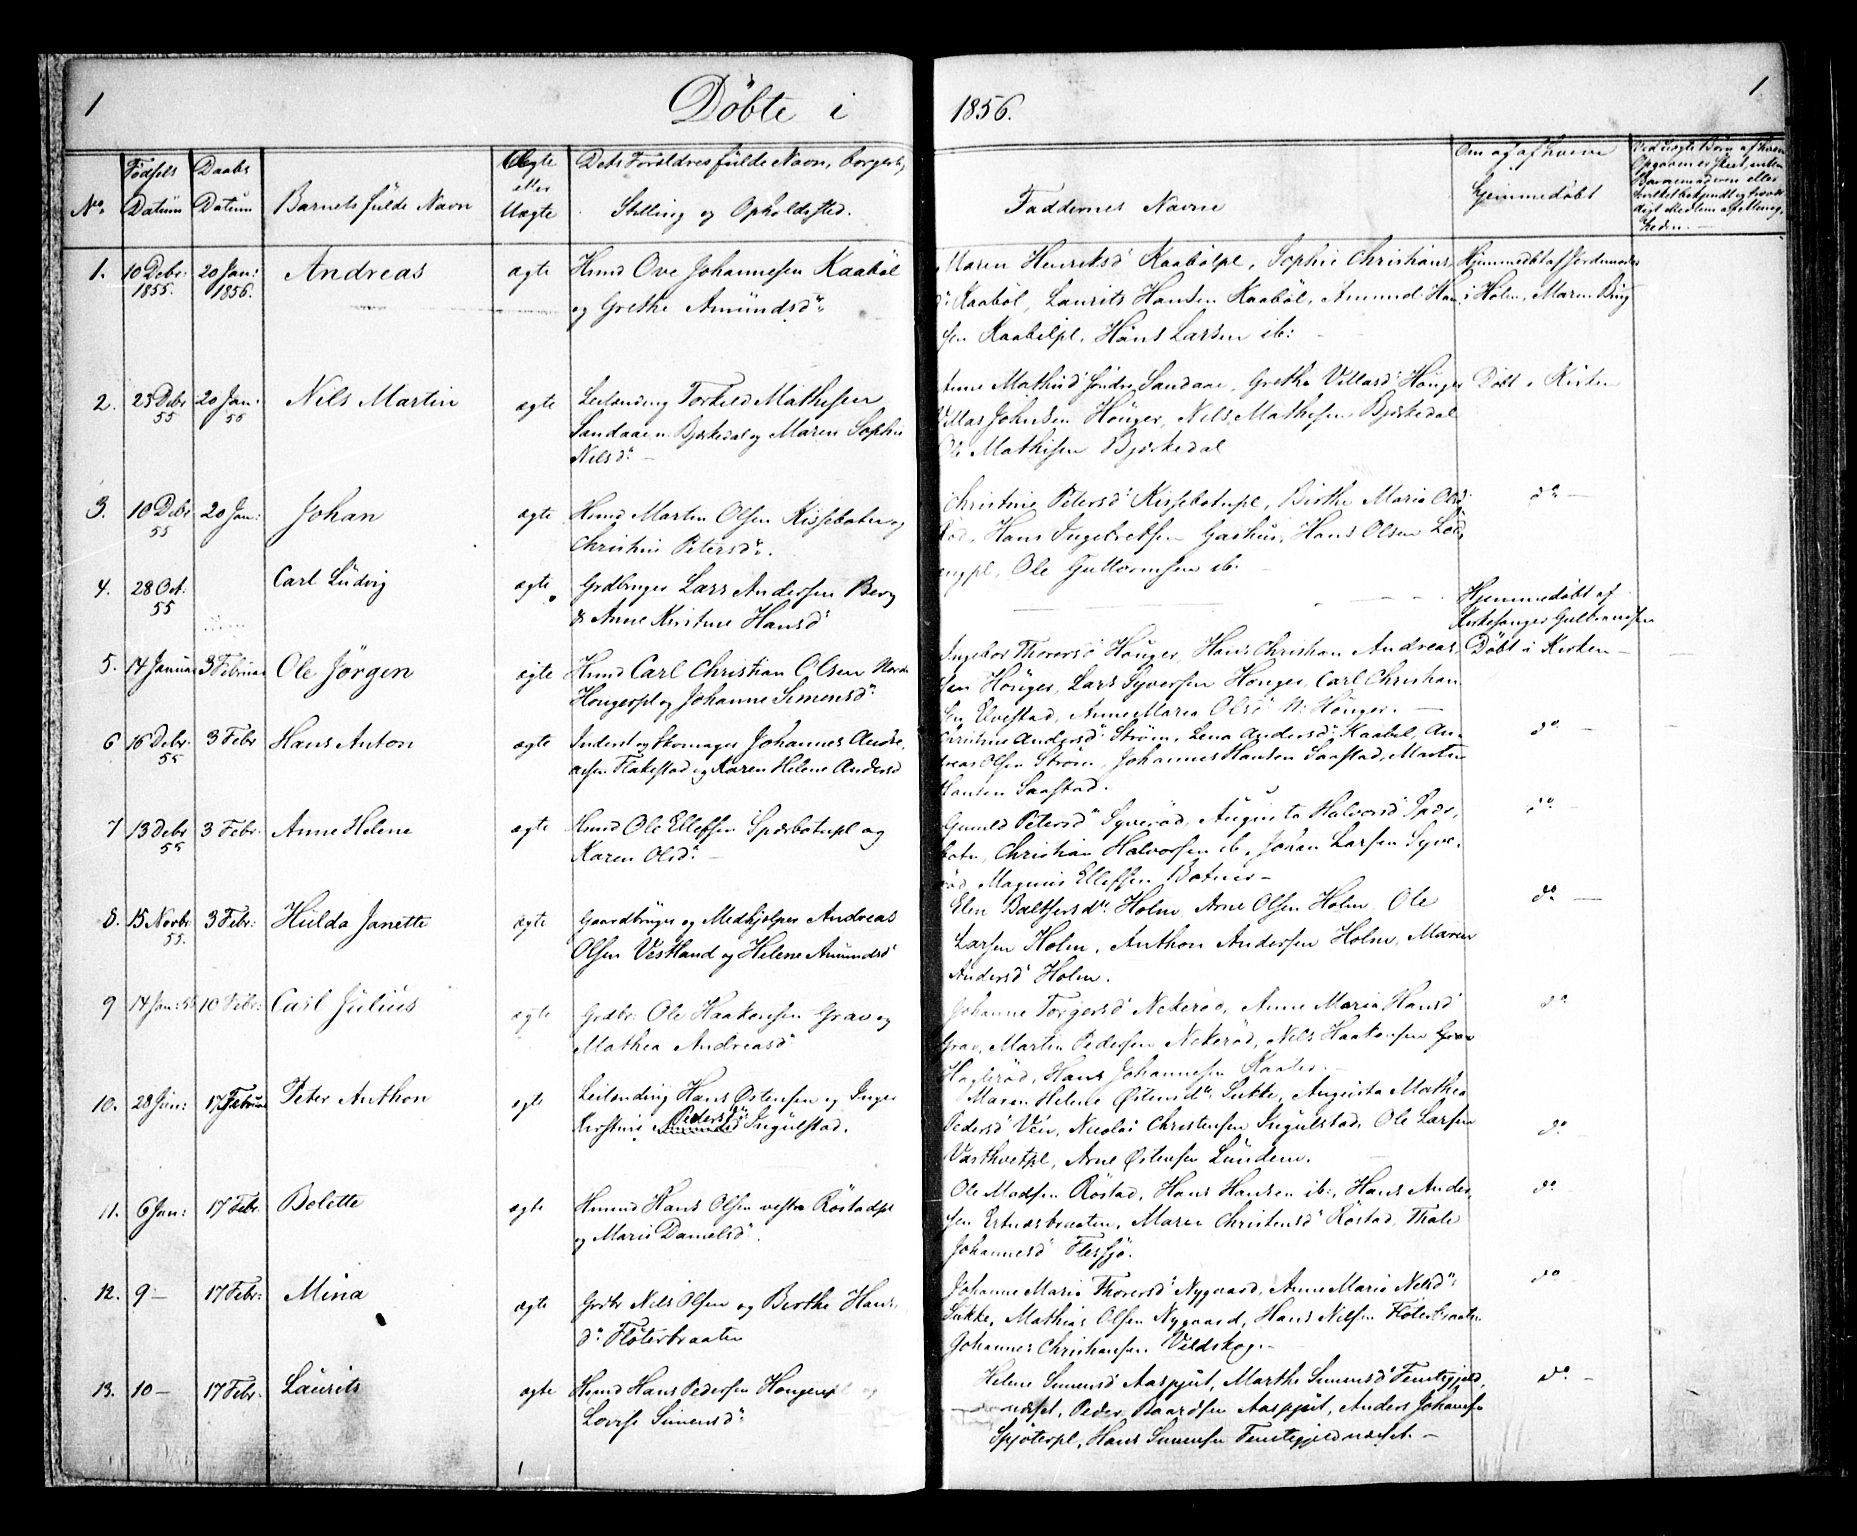 1
Døbte i 1856.
1
No.
Fødsels Datum
Daabs Datum
Barnets fulde Navn
Ægte eller Uægte
Dets Forældres fulde Navn, borgerl. Stilling og Opholdssted.
Faddernes Navne
Om og af hvem hjemmedøbt
1. 10 Debr. 1855. 20 Jan: 1856. Andreas ægte Husmd Ove Johannesen Kaabøl
og Grethe Amundsdr.
Maren Henriksd. Kaabølpl, Sophie Christians
dr. Kaabøl, Laurits Hansen Kaabøl, Amund Han
sen Kaabølpl, Hans Larsen ib:
Hjemmedøbt af Jordemoder
i Holm, Maren
2. 25 Debr 55 20 Jan: 56 Nils Martin ægte Leilending Torkild Mathisen
Sandaaen Bjerkedal og Maren Sophie
Nilsdr.
Anne Mathisd. Søndre Sandaae, Grethe Villasd. Hünger
Villas Johnsen Hünger, Nils Mathisen Bjerkedal
Mathisen Bjerkedal
Døbt i Kirken
3. 10 Debr 55 20 Jan: Johan ægte Husmd Martin Olsen Kissebotn og
Christine Petersdr.
Christine Petersd. Kissebotnpl, Birthe Marie Olsd.
Hans Ingebretsen Gashus, Hans Olsen
Ole Guttormsen ib.
do.
4. 28 Oct: 55 Carl Ludvig ægte Grdbruger Lars Andersen Berg
& Anne Kirstine Hansd.
Hjemmedøbt af
Kirkesanger Gulbrandsen
5. 14 Januar 3 Februar Ole Jørgen ægte Husmd Carl Christian Olsen Nordre
Hougerpl og Johanne Simensdr.
Ingebor Thorersd. Hünger, Hans Christian Andreas
sen Hünger, Lars Syversen Hünger, Carl Christian
sen Elvestad, Anne Maria Olsd. N: Hünger.
Døbt i Kirken
6 16 Debr. 55 3 Febr Hans Anton ægte Inderst og Skomager Johannes Andre
assen Flakestad og Karen Helene Andersd
Christine Andersd. Strøm, Lena Andersd. Kaabøl, An-
dreas Olsen Strøm, Johannes Hansen Saastad, Martin
Hansen Saastad.
do
7 13 Debr 55 3 Febr. Anne Helene ægte Husmd Ole Ellefsen Spærbotnpl og
Karen Olsdr.
Gunild Petersd. Syverød, Augusta Halvorsd. Spær
botn, Christian Halvorsen ib, Johan Larsen Syve-
rød, Magnus Ellefsen Botner
do
8. 15 Novbr. 55. 3 Febr: Hulda Janette ægte Gaardbruger og Medhjelper Andreas
Olsen Vestland og Helene Amundsd
Elen Baltsersdr. Holm, Arne Olsen Holm, Ole
Larsen Holm, Anthon Andersen Holm, Maren
Andersd. Holm.
do
9 14 Jan: 55 10 Febr: Carl Julius ægte Grdbr: Ole Haakensen Grav og
Mathea Andreasd.
Johanne Torgersd. Nekerød, Anne Maria Hansd
Grav, Martin Pedersen Nekerød, Nils Haakonsen Grav
Haglerød, Hans Johannesen Kaater.
do
10. 28 Jan: 17 Februar Peter Anthon ægte Leilending Hans Østensen og Inger
Kirstine Pedersdr. Ingulstad.
Maren Helene Østensdr. Sukke, Augusta Mathea
Pedersd. Vew, Nicolai Christensen Ingulstad, Ole Larsen
Vasthvetpl, Arne Østensen Lundem.
do
11. 6 Jan: 17 Febr. Bolette ægte Husmd Hans Olsen vestre Røstadpl
og Marie Danielsd.
Ole Madsen Røstad, Hans Hansen ib:, Hans Ander
sen Ertnæsbraaten, Maren Christensd. Røstad, Thale
Johannesd. Flessjø.
do
12. 9 — 17 Febr: Mina ægte Grdbr Nils Olsen og Berthe Hans
dr. Fløterbraaten
Johanne Maria Thorersd. Nygaard, Anne Maria Nilsdr.
Sukke, Mathias Olsen Nygaard, Hans Nilsen Fløterbraaten
Johannes Christiansen Vildskog.
do
13. 10 — 17 Febr. Laurits ægte Husmd Hans Pedersen Hougerpl og
Lovise Simensdr.
Helene Simensd. Aaspjut, Marthe Simensd. Fenstigjeld
næset, Peder Baardsen Aaspjut, Anders Johansen
Spjøterpl, Hans Simensen Fenstigjeldnæset.
do
1